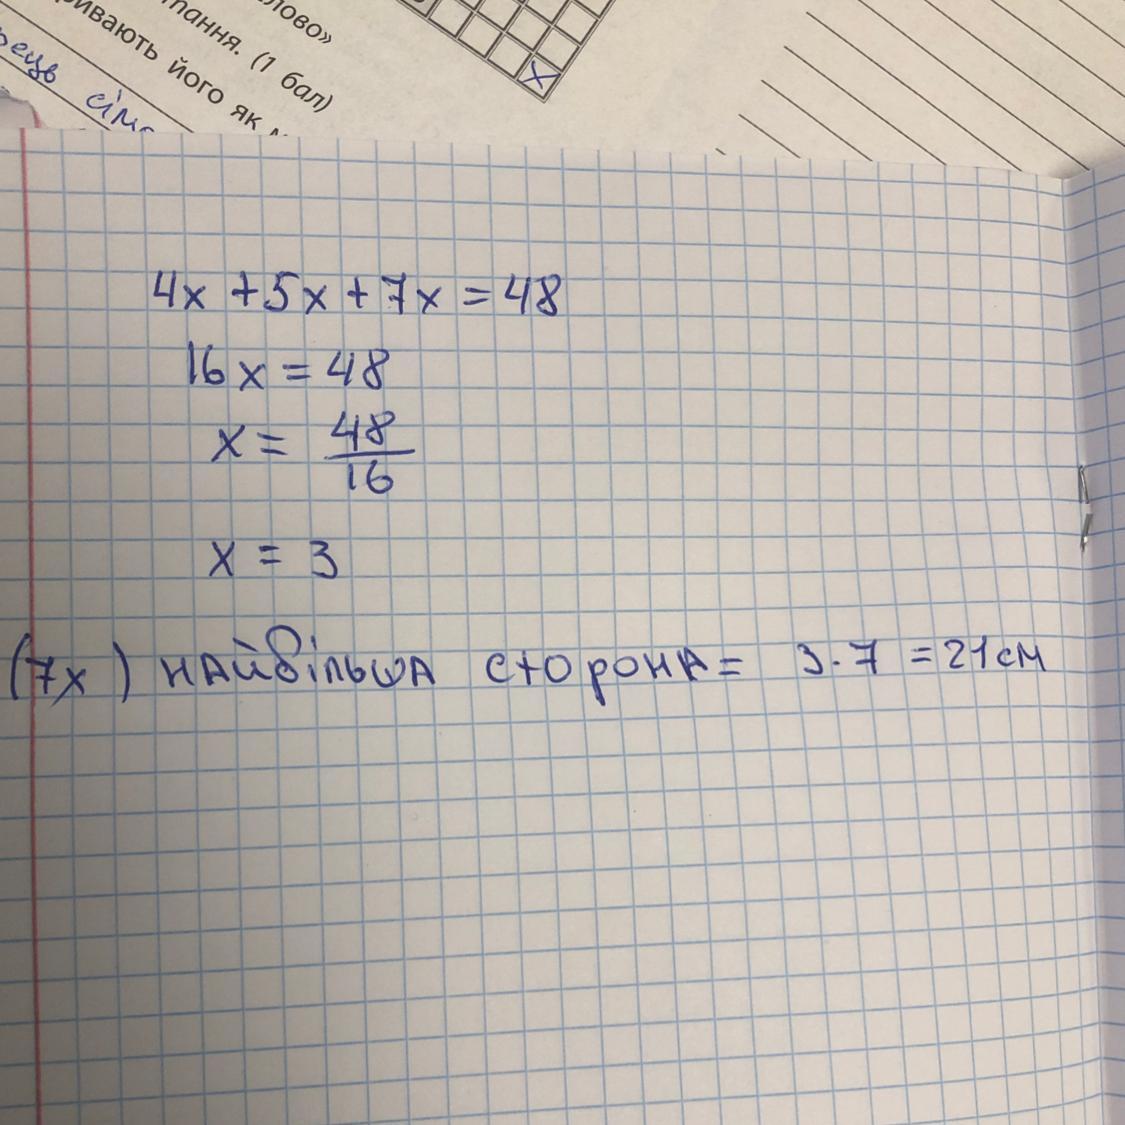 лово»
тання. (1 бал)
ривають його як
сім
4x + 5x + 7x = 48
16x = 48
x = 48/16
x = 3
(7x) найбільша сторона = 3 · 7 = 21 см